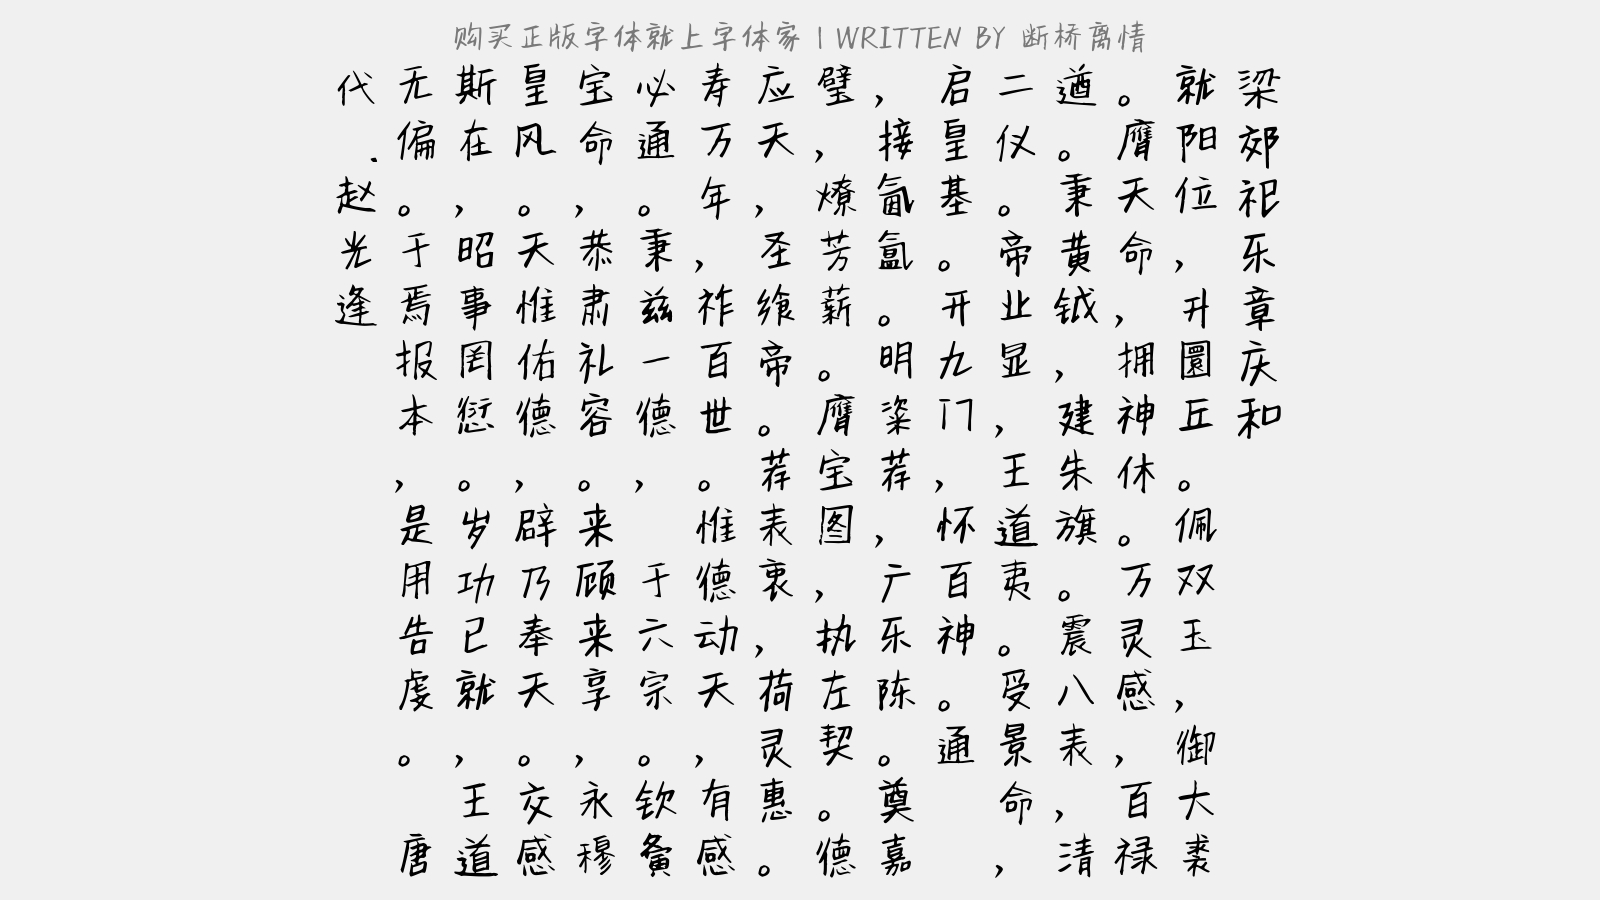 购买正版字体就上字体家 | WRITTEN BY 断桥离情
梁郊祀乐章庆和
就阳位,升圜丘。佩双玉,御大裘
。膺天命,拥神休。万灵感,百禄
遒。秉黄钺,建朱旗。震八表,清
二仪。帝业显,王道夷。受景命,
启皇基。开九门,怀百神。通
,接氤氲。明粢荐,广乐陈。奠嘉
璧,燎芳薪。膺宝图,执左契。德
应天,圣飨帝。荐表衷,荷灵惠。
寿万年,祚百世。惟德动天,有感
必通。秉兹一德, 于六宗。钦夤
宝命,恭肃礼容。来顾来享,永穆
皇风。天惟佑德,辟乃奉天。交感
斯在,昭事罔愆。岁功已就,王道
无偏。于焉报本,是用告虔。 唐
代.赵光逢